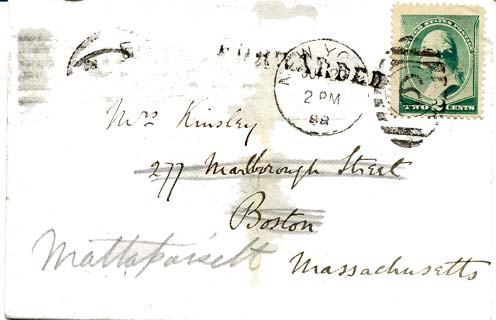 FORWARDED
NEW YO
2 PM
88
UNITED STATES POSTAGE
TWO 2 CENTS
Mrs Kinsley
277 Marlborough Street
Boston
Mattapoisett
Massachusetts